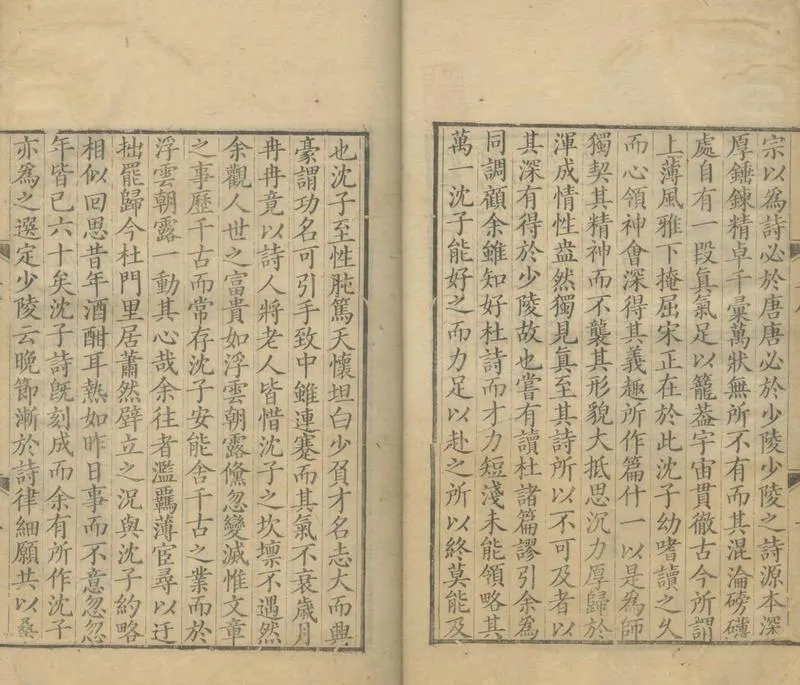 宗以為詩必於唐唐必於少陵少陵之詩源本深
厚錘鍊精卓千彙萬狀無所不有而其混淪磅礴
處自有一段真氣足以籠葢宇宙貫徹古今所謂
上薄風雅下掩屈宋正在於此沈子幼嗜讀之久
而心領神會深得其義趣所作篇什一以是為師
獨契其精神而不襲其形貌大抵思沉力厚歸於
渾成情性盎然獨見真至其詩所以不可及者以
其深有得於少陵故也嘗有讀杜諸篇謬引余為
同調顧余雖知好杜詩而才力短淺未能領略其
萬一沈子能好之而力足以赴之所以終莫能及
也沈子至性肫篤天懷坦白少負才名志大而興
豪謂功名可引手致中雖連蹇而其氣不衰歲月
冉冉竟以詩人將老人皆惜沈子之坎壈不遇然
余觀人世之富貴如浮雲朝露儵忽變滅惟文章
之事歷千古而常存沈子安能舍千古之業而於
浮雲朝露一動其心哉余往者濫羈薄宦尋以迂
拙罷歸今杜門里居蕭然壁立之況與沈子約略
相似回思昔年酒酣耳熱如昨日事而不意忽忽
年皆已六十矣沈子詩旣刻成而余有所作沈子
亦為之選定少陵云晚節漸於詩律細願共以桑